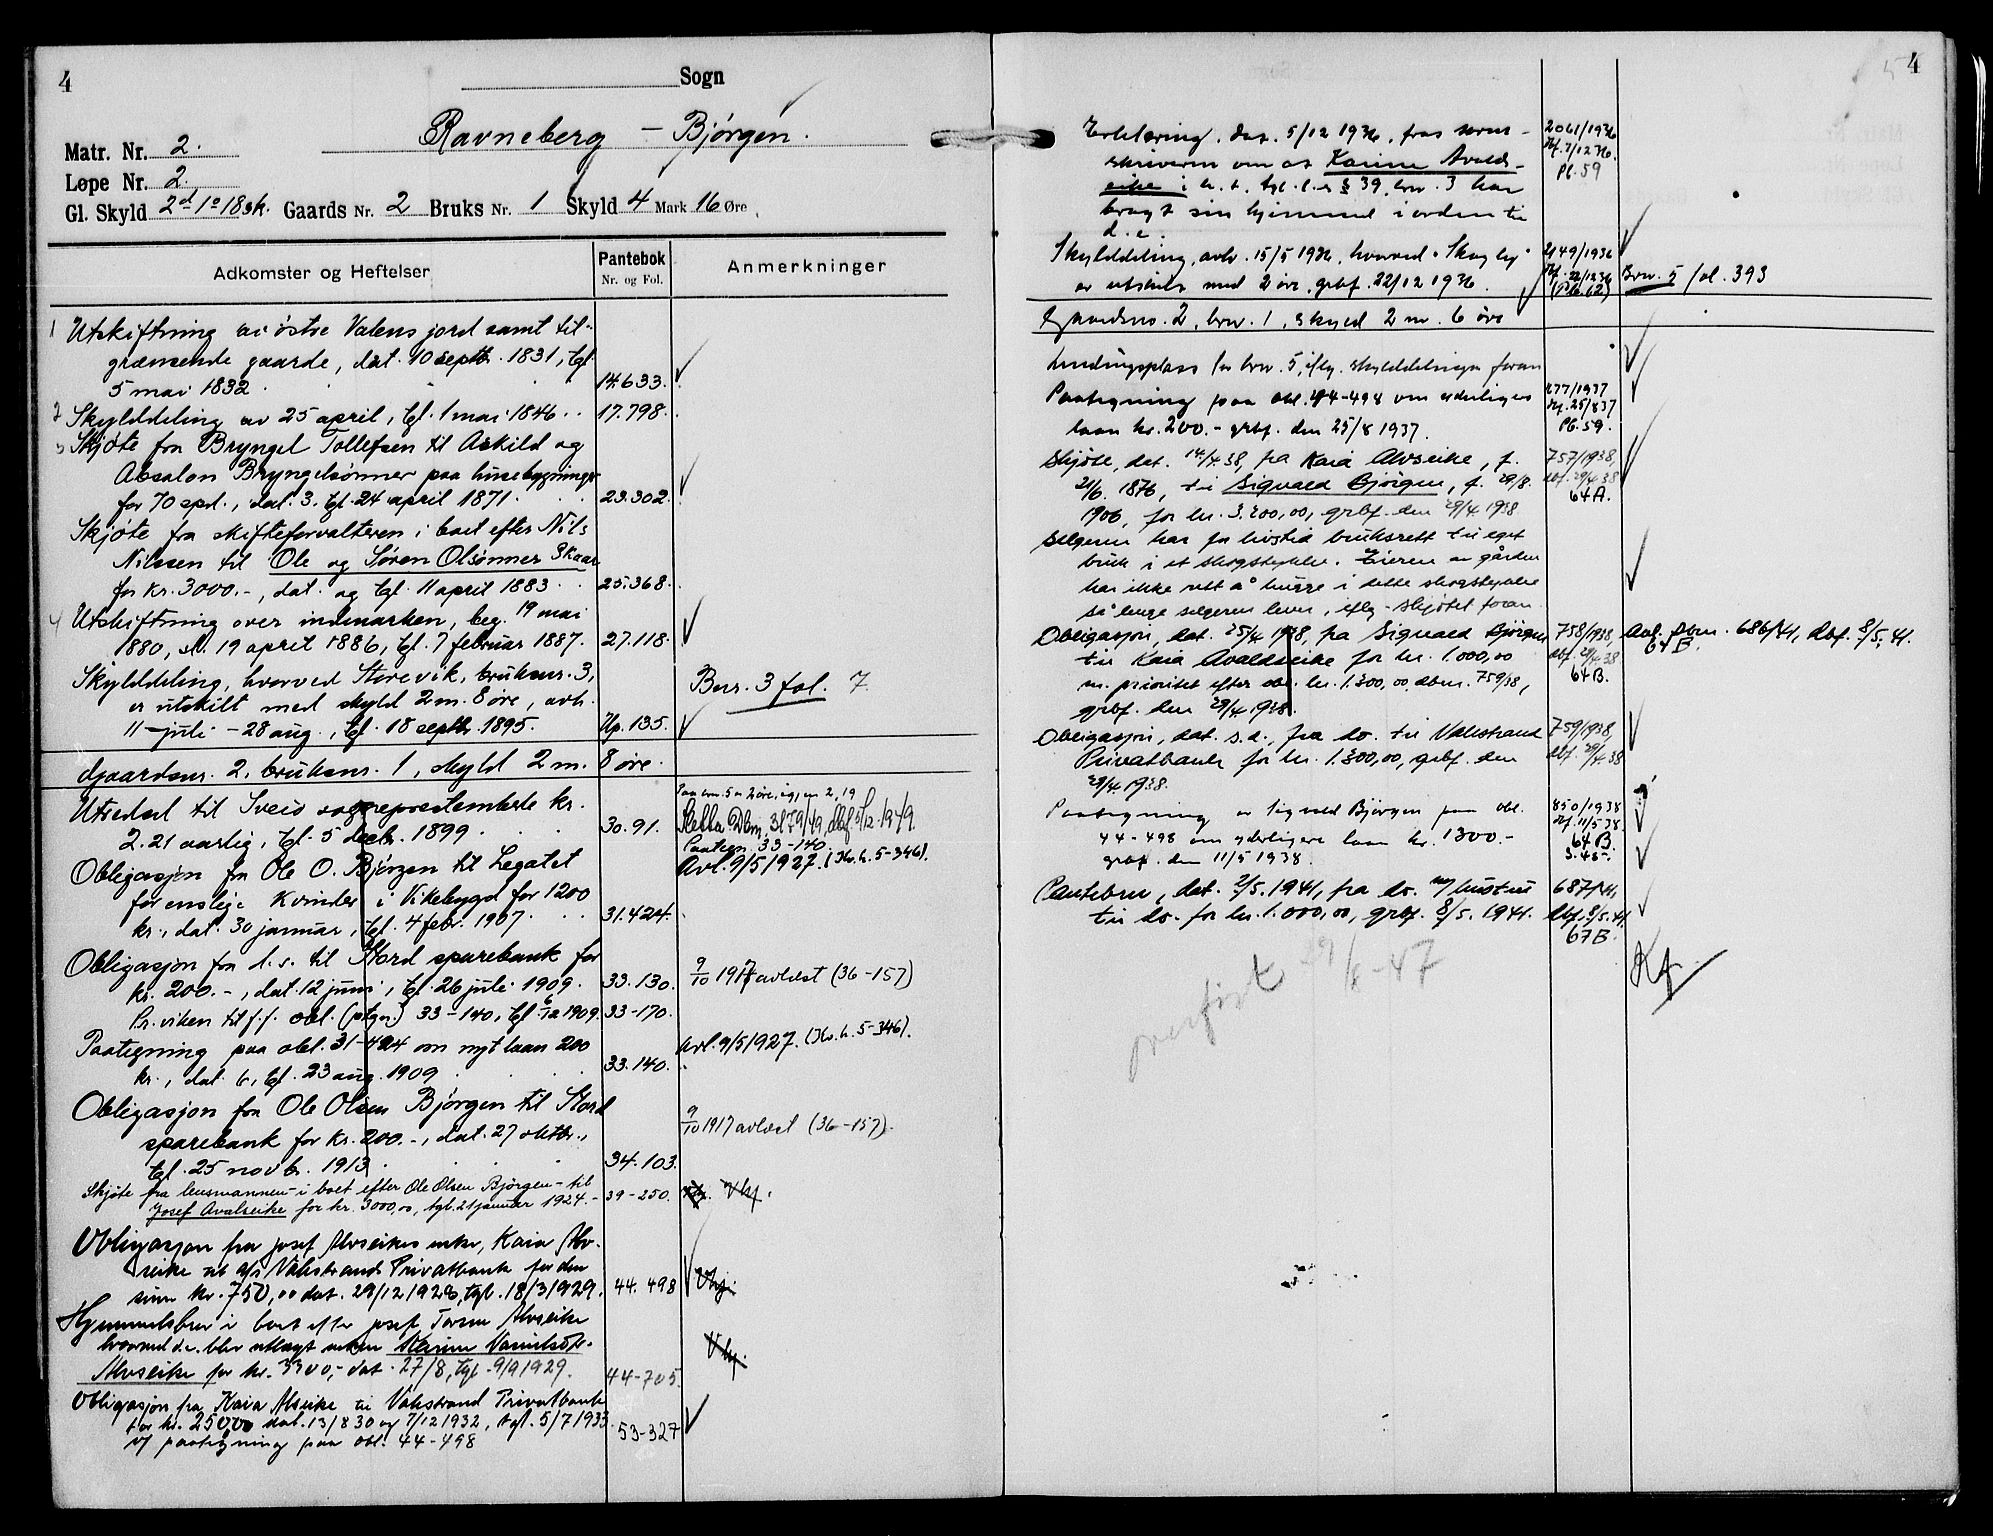 4
Sogn
Ravneberg - Bjørgen.
Matr. Nr. 2.
Løpe Nr. 2.
Gl. Skyld 2d 1o 18sk. Gaards Nr. 2 Bruks Nr. 1 Skyld 4 Mark 16 Øre
Adkomster og Heftelser
Pantebok
Nr. og Fol.
Anmerkninger
1 Utskiftning av østre Valens jord samt til-
grænsende gaarde, dat. 10 septbr. 1831, tgl.
5 mai 1832. 14.633.
2 Skylddeling av 25 april, tgl. 1 mai 1846. 17.798.
3 Skjøte fra Bryngel Tollefsen til Askild og
Absalon Bryngelsønner paa husebygninger
for 70 spd., dat. 3. tgl. 24 april 1871. 23.302.
Skjøte fra skifteforvalteren i boet efter Nils
Nilssen til Ole og Søren Olsønner Skaar
for kr. 3000.-, dat. og tgl. 11 april 1883. 25.368.
4 Utskiftning over indmarken, beg. 19 mai
1880, sl. 19 april 1886, tgl. 7 februar 1887. 27.118.
Skylddeling, hvorved Storevik, bruksnr. 3,
er utskilt med skyld 2 m. 8 øre, avh.
11 juli - 28 aug., tgl. 18 septbr. 1895. Up. 135.
Bnr. 3 fol. 7
Gaardsnr. 2, bruksnr. 1, skyld 2 m. 8 øre.
Utredsel til Sveio sogneprestembede kr.
2.21 aarlig, tgl. 5 decbr. 1899. 30.91.
Slettet Dbnr. 3179/49, dbf. 5/12-1949.
Paategn. 33-140.
Obligasjon fra Ole O. Bjørgen til Legatet
for enslige Kvinder i Vikebygd for 1200
kr., dat. 30 januar, tgl. 4 febr. 1907. 31.424.
Avl. 9/5 1927. (Kv.h. 5-346).
Obligasjon fra d.s. til Stord sparebank for
kr. 200.-, dat. 12 juni, tgl. 26 juli 1909. 33.130.
9/10 1917 avløst (36-157)
Pr. viken til f.f. obl. (ptgn.) 33-140, tgl. 6/12 1909. 33-170.
Paategning paa obl. 31-424 om nyt laan 200
kr., dat. 6, tgl. 23 aug. 1909. 33.140.
Avl. 9/5 1927. (Kv.h. 5-346).
Obligasjon fra Ole Olsen Bjørgen til Stord
sparebank for kr. 200.-, dat. 27 oktbr.,
tgl. 25 novbr. 1913. 34.103.
9/10 1917 avløst (36-157).
Skjøte fra lensmannen i boet efter Ole Olsen Bjørgen - til
Josef Avalseike for kr. 3000,00, tgl. 21 januar 1924.- 39-250.
Vhj.
Obligasjon fra Josef Alvseikes enke, Kaia Alv-
seike til A/s Valestrand Privatbank for den
sum kr. 750,00 dat. 29/12 1928, tgl. 18/3 1929. 44.498
Vhj.
Hjemmelsbrev i boet efter Josef Alvseike
hvorved d.e. blev utlagt enken
Alvseike for kr. 3300,- dat. 27/8, tgl. 9/9 1929. 44-705.
Vhj.
Obligasjon fra Kaia Alvseike til Valestrand Privatbank
for kr. 2500 dat. 13/8 30 og 7/12 1932, tgl. 5/7 1933. 53-327
v/ paategning paa obl. 44-498
4
Erklæring, dat. 5/12 1936, fra soren-
skriveren om at Karine Avalds-
eike i h. t. tgl. l.s § 39, bnr. 3 har
bragt sin hjemmel i orden til
d.e.
2061/1936
Pb. 59
Skylddeling, avh. 15/5 1936, hvorved "Skogly"
er utskilt med 2 øre, grbf. 22/12 1936.
2149/1936
(Pb. 62)
Bnr. 5 fol. 393
Gaardsnr. 2, bnr. 1, skyld 2 m. 6 øre
Lendingsplass for bnr. 5, iflg. skylddelingen foran
Paategning paa obl. 44-498 om yderligere
laan kr. 200.- grbf. den 25/8 1937.
877/1937
Pb. 59.
Skjøte, dat. 14/4.38, fra Kaia Alvseike, f.
21/6. 1876, til Sigvald Bjørgen, f. 29/8.
1906, for kr. 3.200,00, grbf. den 29/4 1938
757/1938,
dbf. 29/4.38
64 A.
Selgeren har for livstid bruksrett til eget
bruk i et skogstykke. Eieren av gården
har ikke rett å hugge i dette skogstykke
så lenge selgeren lever, iflg. skjøtet foran.
Obligasjon, dat. 25/4 1938, fra Sigvald Bjørgen
til Kaia Avaldseike for kr. 1.000,00
m. prioritet efter obl. kr. 1.300,00, dbnr. 759/38,
grbf. den 29/4 1938.
758/1938,
dbf. 29/4.38
64 B.
Avl. Dbnr. 686/41, dbf. 8/5.41.
67 B.
Obligasjon, dat. s.d., fra do. til Valestrand
Privatbank for kr. 1.300,00, grbf. den
29/4 1938.
759/1938,
dbf. 29/4.38
Paategning av Sigvald Bjørgen paa obl.
44-498 om yderligere laan kr. 1300.-
grbf. den 11/5 1938.
850/1938
dbf. 11/5 38
64 B.
Pantebrev, dat. 2/5. 1941, fra do. m/ hustru
til do. for kr. 1.000,00, grbf. 8/5. 1941.
687/41,
dbf. 8/5.41.
67 B.
overført 29/8-47